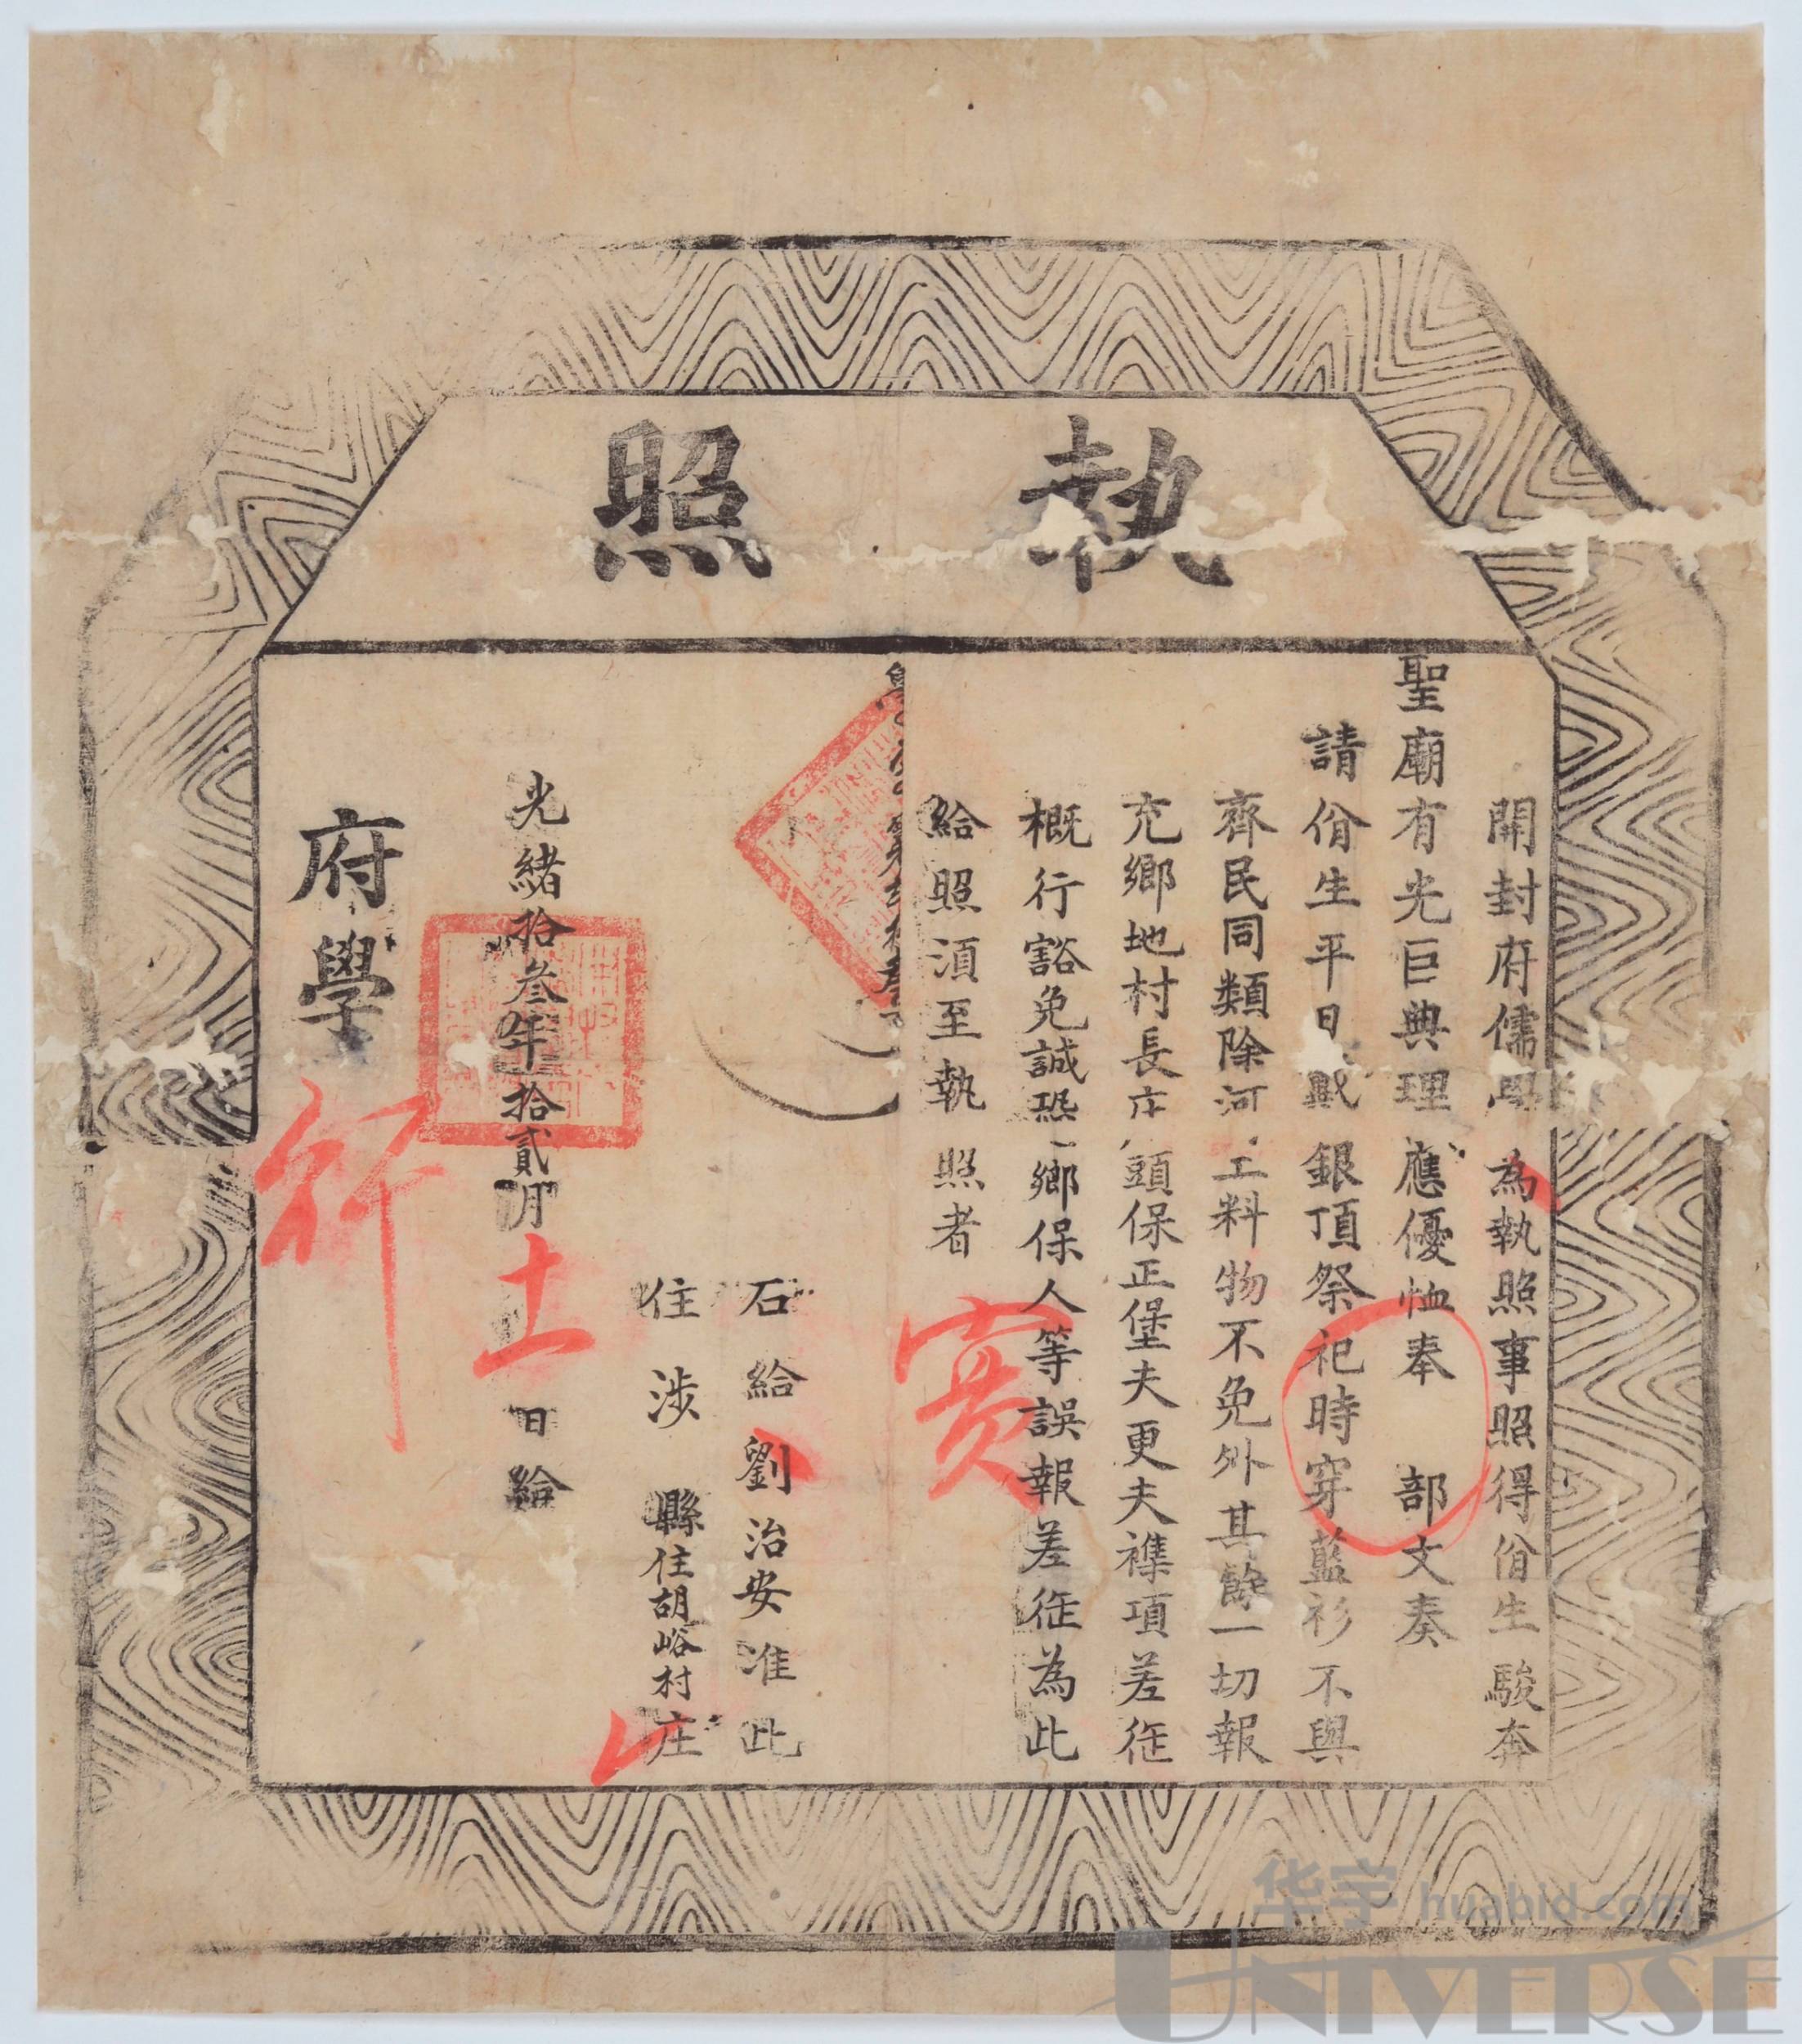 執照
開封府儒學為執照事照得佾生駿奔
聖廟有光巨典理應優恤奉 部文奏
請佾生平日戴銀頂祭祀時穿藍衫不與
齊民同類除河工料物不免外其餘一切報
充鄉地村長庄頭保正堡夫更夫襍項差徭
概行豁免誠恐鄉保人等誤報差徭為此
給照須至執照者
實
石給劉治安准此
住涉縣住胡峪村庄
光緒拾叁年拾貳月十一日給
府學
行
华宇 huabid.com
UNIVERSE